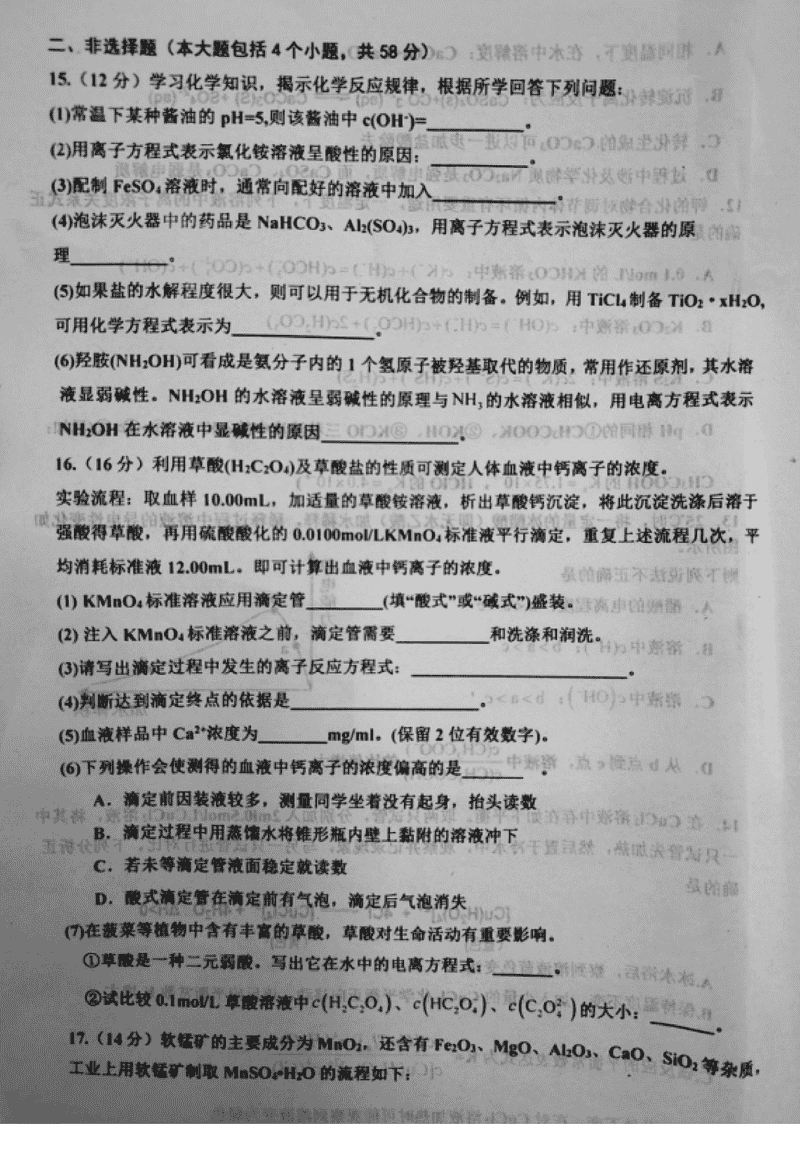 二、非选择题（本大题包括 4 个小题，共 58 分）
15.（12 分）学习化学知识，揭示化学反应规律，根据所学回答下列问题：
(1)常温下某种酱油的 pH=5,则该酱油中 c(OH⁻)=________。
(2)用离子方程式表示氯化铵溶液呈酸性的原因：________。
(3)配制 FeSO₄ 溶液时，通常向配好的溶液中加入________。
(4)泡沫灭火器中的药品是 NaHCO₃、Al₂(SO₄)₃，用离子方程式表示泡沫灭火器的原
理________。
(5)如果盐的水解程度很大，则可以用于无机化合物的制备。例如，用 TiCl₄ 制备 TiO₂·xH₂O,
可用化学方程式表示为________。
(6)羟胺(NH₂OH)可看成是氨分子内的 1 个氢原子被羟基取代的物质，常用作还原剂，其水溶
液显弱碱性。NH₂OH 的水溶液呈弱碱性的原理与 NH₃ 的水溶液相似，用电离方程式表示
NH₂OH 在水溶液中显碱性的原因________。
16.（16 分）利用草酸(H₂C₂O₄)及草酸盐的性质可测定人体血液中钙离子的浓度。
实验流程：取血样 10.00mL，加适量的草酸铵溶液，析出草酸钙沉淀，将此沉淀洗涤后溶于
强酸得草酸，再用硫酸酸化的 0.0100mol/LKMnO₄ 标准液平行滴定，重复上述流程几次，平
均消耗标准液 12.00mL。即可计算出血液中钙离子的浓度。
(1) KMnO₄ 标准溶液应用滴定管________(填“酸式”或“碱式”)盛装。
(2) 注入 KMnO₄ 标准溶液之前，滴定管需要________和洗涤和润洗。
(3)请写出滴定过程中发生的离子反应方程式：________。
(4)判断达到滴定终点的依据是________。
(5)血液样品中 Ca²⁺浓度为________mg/ml。(保留 2 位有效数字)。
(6)下列操作会使测得的血液中钙离子的浓度偏高的是________。
A．滴定前因装液较多，测量同学坐着没有起身，抬头读数
B．滴定过程中用蒸馏水将锥形瓶内壁上黏附的溶液冲下
C．若未等滴定管液面稳定就读数
D．酸式滴定管在滴定前有气泡，滴定后气泡消失
(7)在菠菜等植物中含有丰富的草酸，草酸对生命活动有重要影响。
①草酸是一种二元弱酸。写出它在水中的电离方程式：________。
②试比较 0.1mol/L 草酸溶液中 c(H₂C₂O₄)、c(HC₂O₄⁻)、c(C₂O₄²⁻)的大小：________。
17.（14 分）软锰矿的主要成分为 MnO₂，还含有 Fe₂O₃、MgO、Al₂O₃、CaO、SiO₂ 等杂质，
工业上用软锰矿制取 MnSO₄•H₂O 的流程如下：